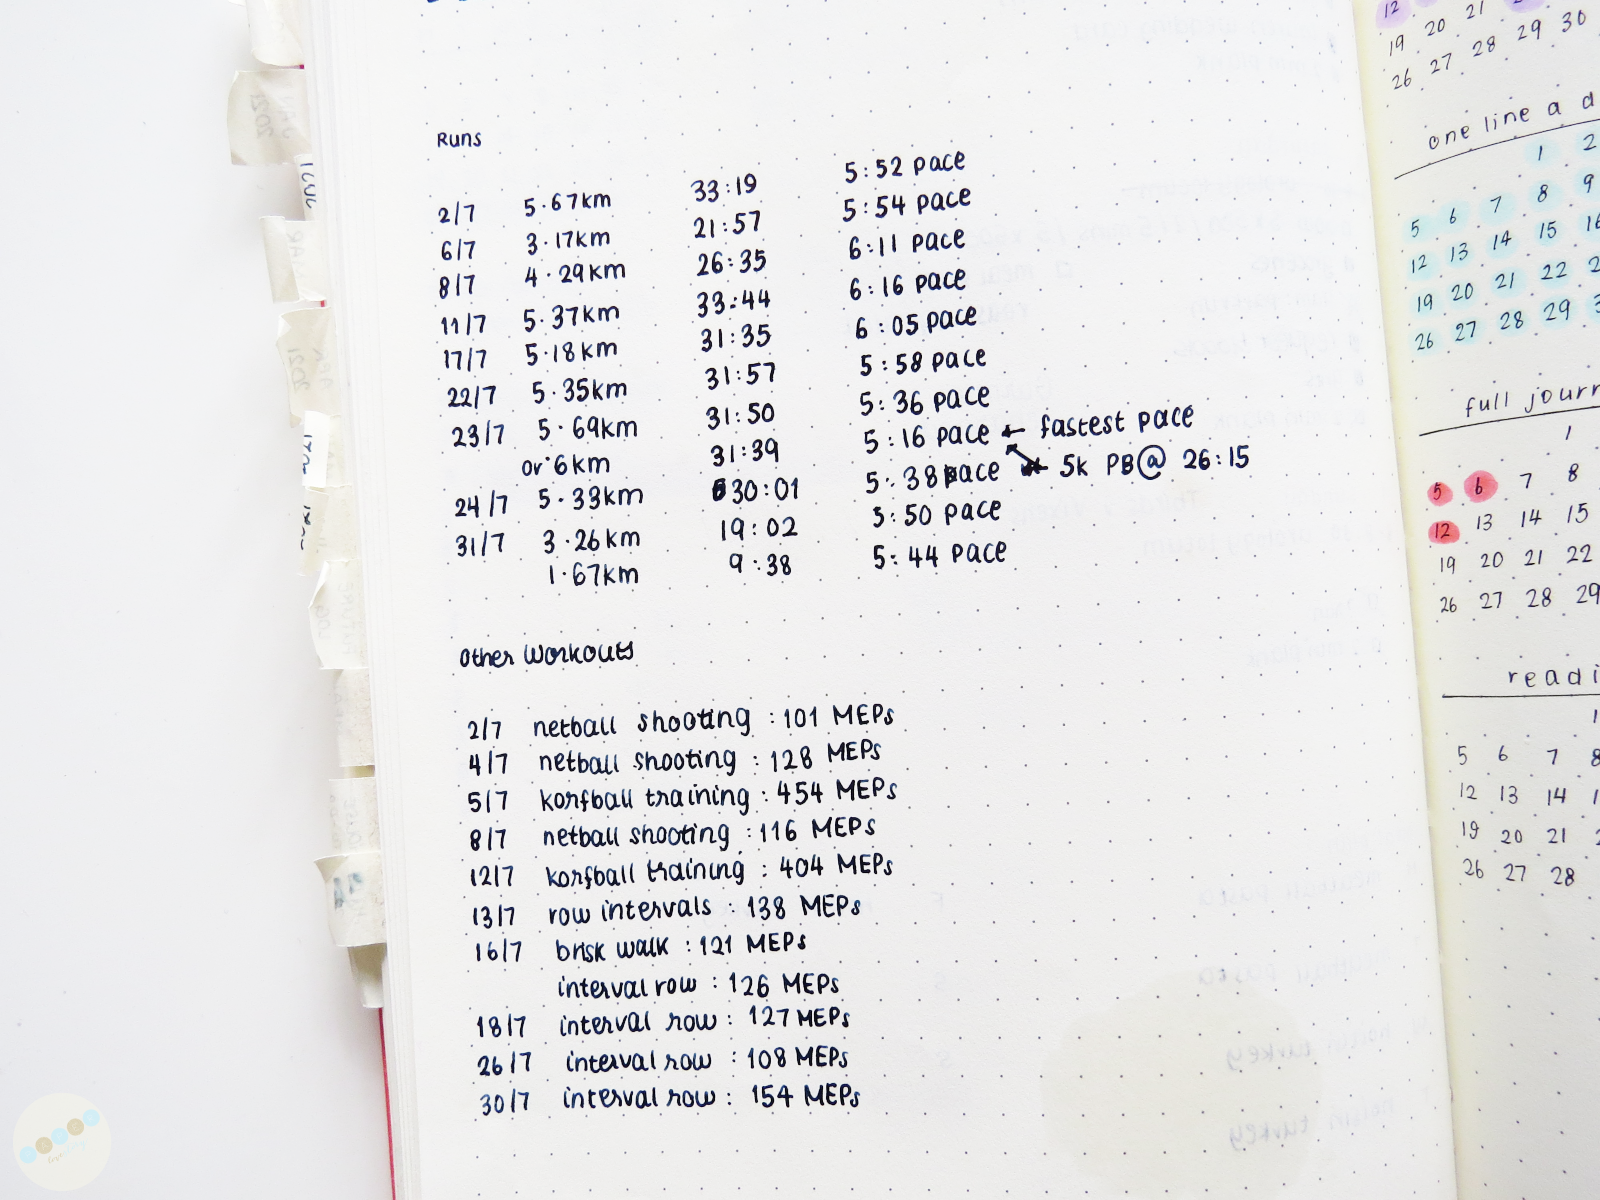 Runs
2/7 5.67km 33:19 5:52 pace
6/7 3.17km 21:57 5:54 pace
8/7 4.29km 26:35 6:11 pace
11/7 5.37km 33:44 6:16 pace
17/7 5.18km 31:35 6:05 pace
22/7 5.35km 31:57 5:58 pace
23/7 5.69km 31:50 5:36 pace
or 6km 31:39 5:16 pace ← fastest pace
24/7 5.33km 30:01 5:38 pace 5k PB@ 26:15
31/7 3.26km 19:02 5:50 pace
1.67km 9:38 5:44 pace
Other Workouts
2/7 netball shooting : 101 MEPs
4/7 netball shooting : 128 MEPs
5/7 korfball training : 454 MEPs
8/7 netball shooting : 116 MEPs
12/7 korfball training : 404 MEPs
13/7 row intervals : 138 MEPs
16/7 brisk walk : 121 MEPs
interval row : 126 MEPs
18/7 interval row : 127 MEPs
26/7 interval row : 108 MEPs
30/7 interval row : 154 MEPs
12
19 20 21
26 27 28 29 30
one line a d
1 2
5 6 7 8 9
12 13 14 15 16
19 20 21 22 2
26 27 28 29 3
full journ
1
5 6 7 8
12 13 14 15
19 20 21 22
26 27 28 29
readi
1
5 6 7 8
12 13 14 1
19 20 21 2
26 27 28